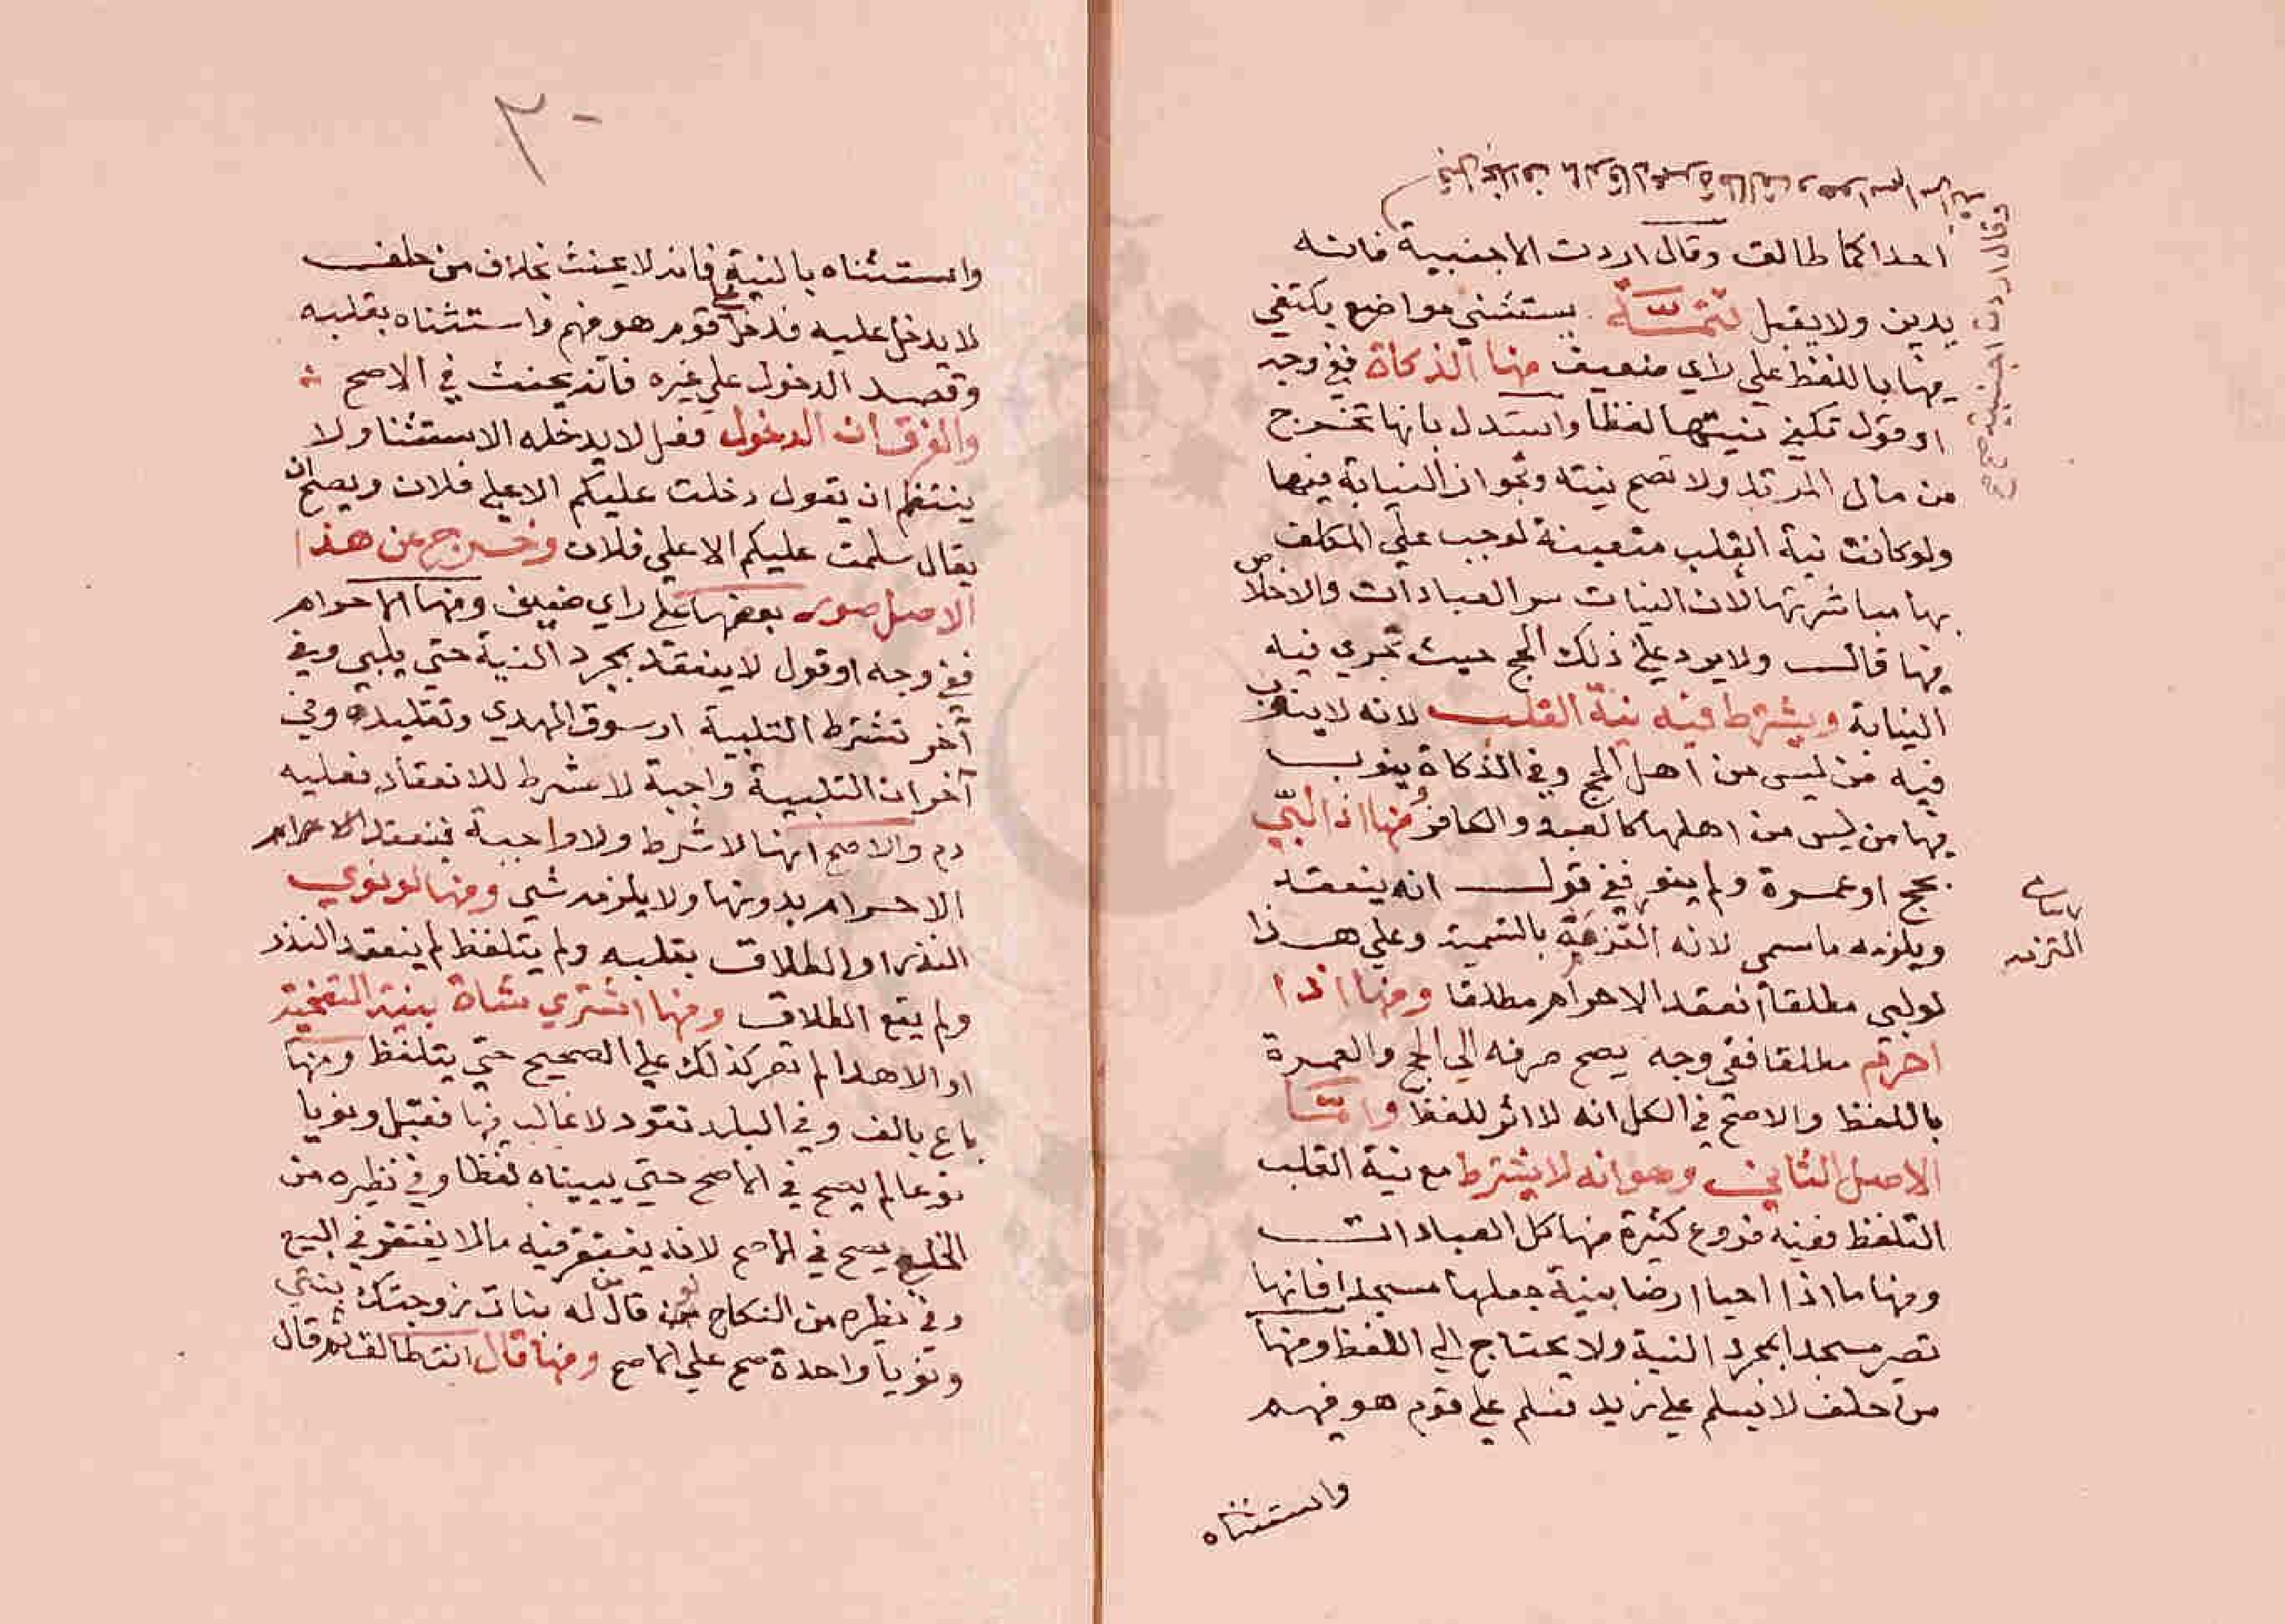 احداكما طالق وقال اردت الاجنبية فانه
يدين ولا يقبل تتمــة يستثني مواضع يكتفي
فيها باللفظ علي راي ضعيف منها الزكاة ففي وجه
او قول تكفي نيتها لفظا واستدل بانها تخرج
من مال المرتد ولا تصح نيته وتجواز النيابة فيها
ولو كانت نية القلب متعينة لوجب علي المكلف
بها مباشرتها لان النيات سر العبادات والاخلاص
فيها قال ولا يرد علي ذلك الحج حيث تجري فيه
النيابة ويشترط فيه نية القلب لانه لا ينوب
فيه من ليس من اهل الحج وفي الزكاة ينوب
فيها من ليس من اهلها كالعبد والكافر ومنها اذا لبّي
بحج او عمرة ولم ينو ففي قول انه ينعقد
ويلزمه ما سمي لانه التزمه بالتسمية وعلي هذا
لو لبي مطلقا انعقد الاحرام مطلقا ومنها اذا
احرم مطلقا ففي وجه يصح صرفه الي الحج والعمرة
باللفظ والاصح في الكل انه لا اثر للفظ وامّــا
الاصل الثاني وهو انه لا يشترط مع نية القلب
التلفظ ففيه فروع كثيرة منها كل العبادات
ومنها ما اذا احيا ارضا بنية جعلها مسجدا فانها
تصير مسجدا بمجرد النية ولا يحتاج الي اللفظ ومنها
من حلف لا يسلم علي زيد فسلم علي قوم هو فيهم
واستثناه
وقال اردت اجنبية صح
التزمه
٣٠
واستثناه بالنية فانه لا يحنث بخلاف من حلف
لا يدخل عليه فدخل علي قوم هو فيهم واستثناه بقلبه
وقصد الدخول علي غيره فانه يحنث في الاصح
والفرق ان الدخول فعل لا يدخله الاستثنا ولا
ينتظم ان يقول دخلت عليكم الا علي فلان ويصلح ان
يقال سلمت عليكم الا علي فلان وخرج عن هذا
الاصل صور بعضها علي راي ضعيف ومنها الاحرام
ففي وجه او قول لا ينعقد بمجرد النية حتي يلبي وفي
آخر تشترط التلبية او سوق الهدي وتقليده وفي
آخر ان التلبية واجبة لا شرط للانعقاد فعليه
دم والاصح انها لا شرط ولا واجبة فينعقد الاحرام
الاحرام بدونها ولا يلزمه شي ومنها لو نوي
النذر او الطلاق بقلبه ولم يتلفظ لم ينعقد النذر
ولم يقع الطلاق ومنها اشتري شاة بنية التضحية
او الاهدا لم تصر كذلك علي الصحيح حتي يتلفظ ومنها
باع بالف وفي البلد نقود لا غالب فيها فقبل ونويا
نوعا لم يصح في الاصح حتي يبيناه لفظا وفي نظيره من
الخلع يصح في الاصح لانه يغتفر فيه مالا يغتفر في البيع
وفي نظيره من النكاح لو قال من له بنات زوجتك بنتي
ونويا واحدة صح علي الاصح ومنها قال انت طالق ثم قال